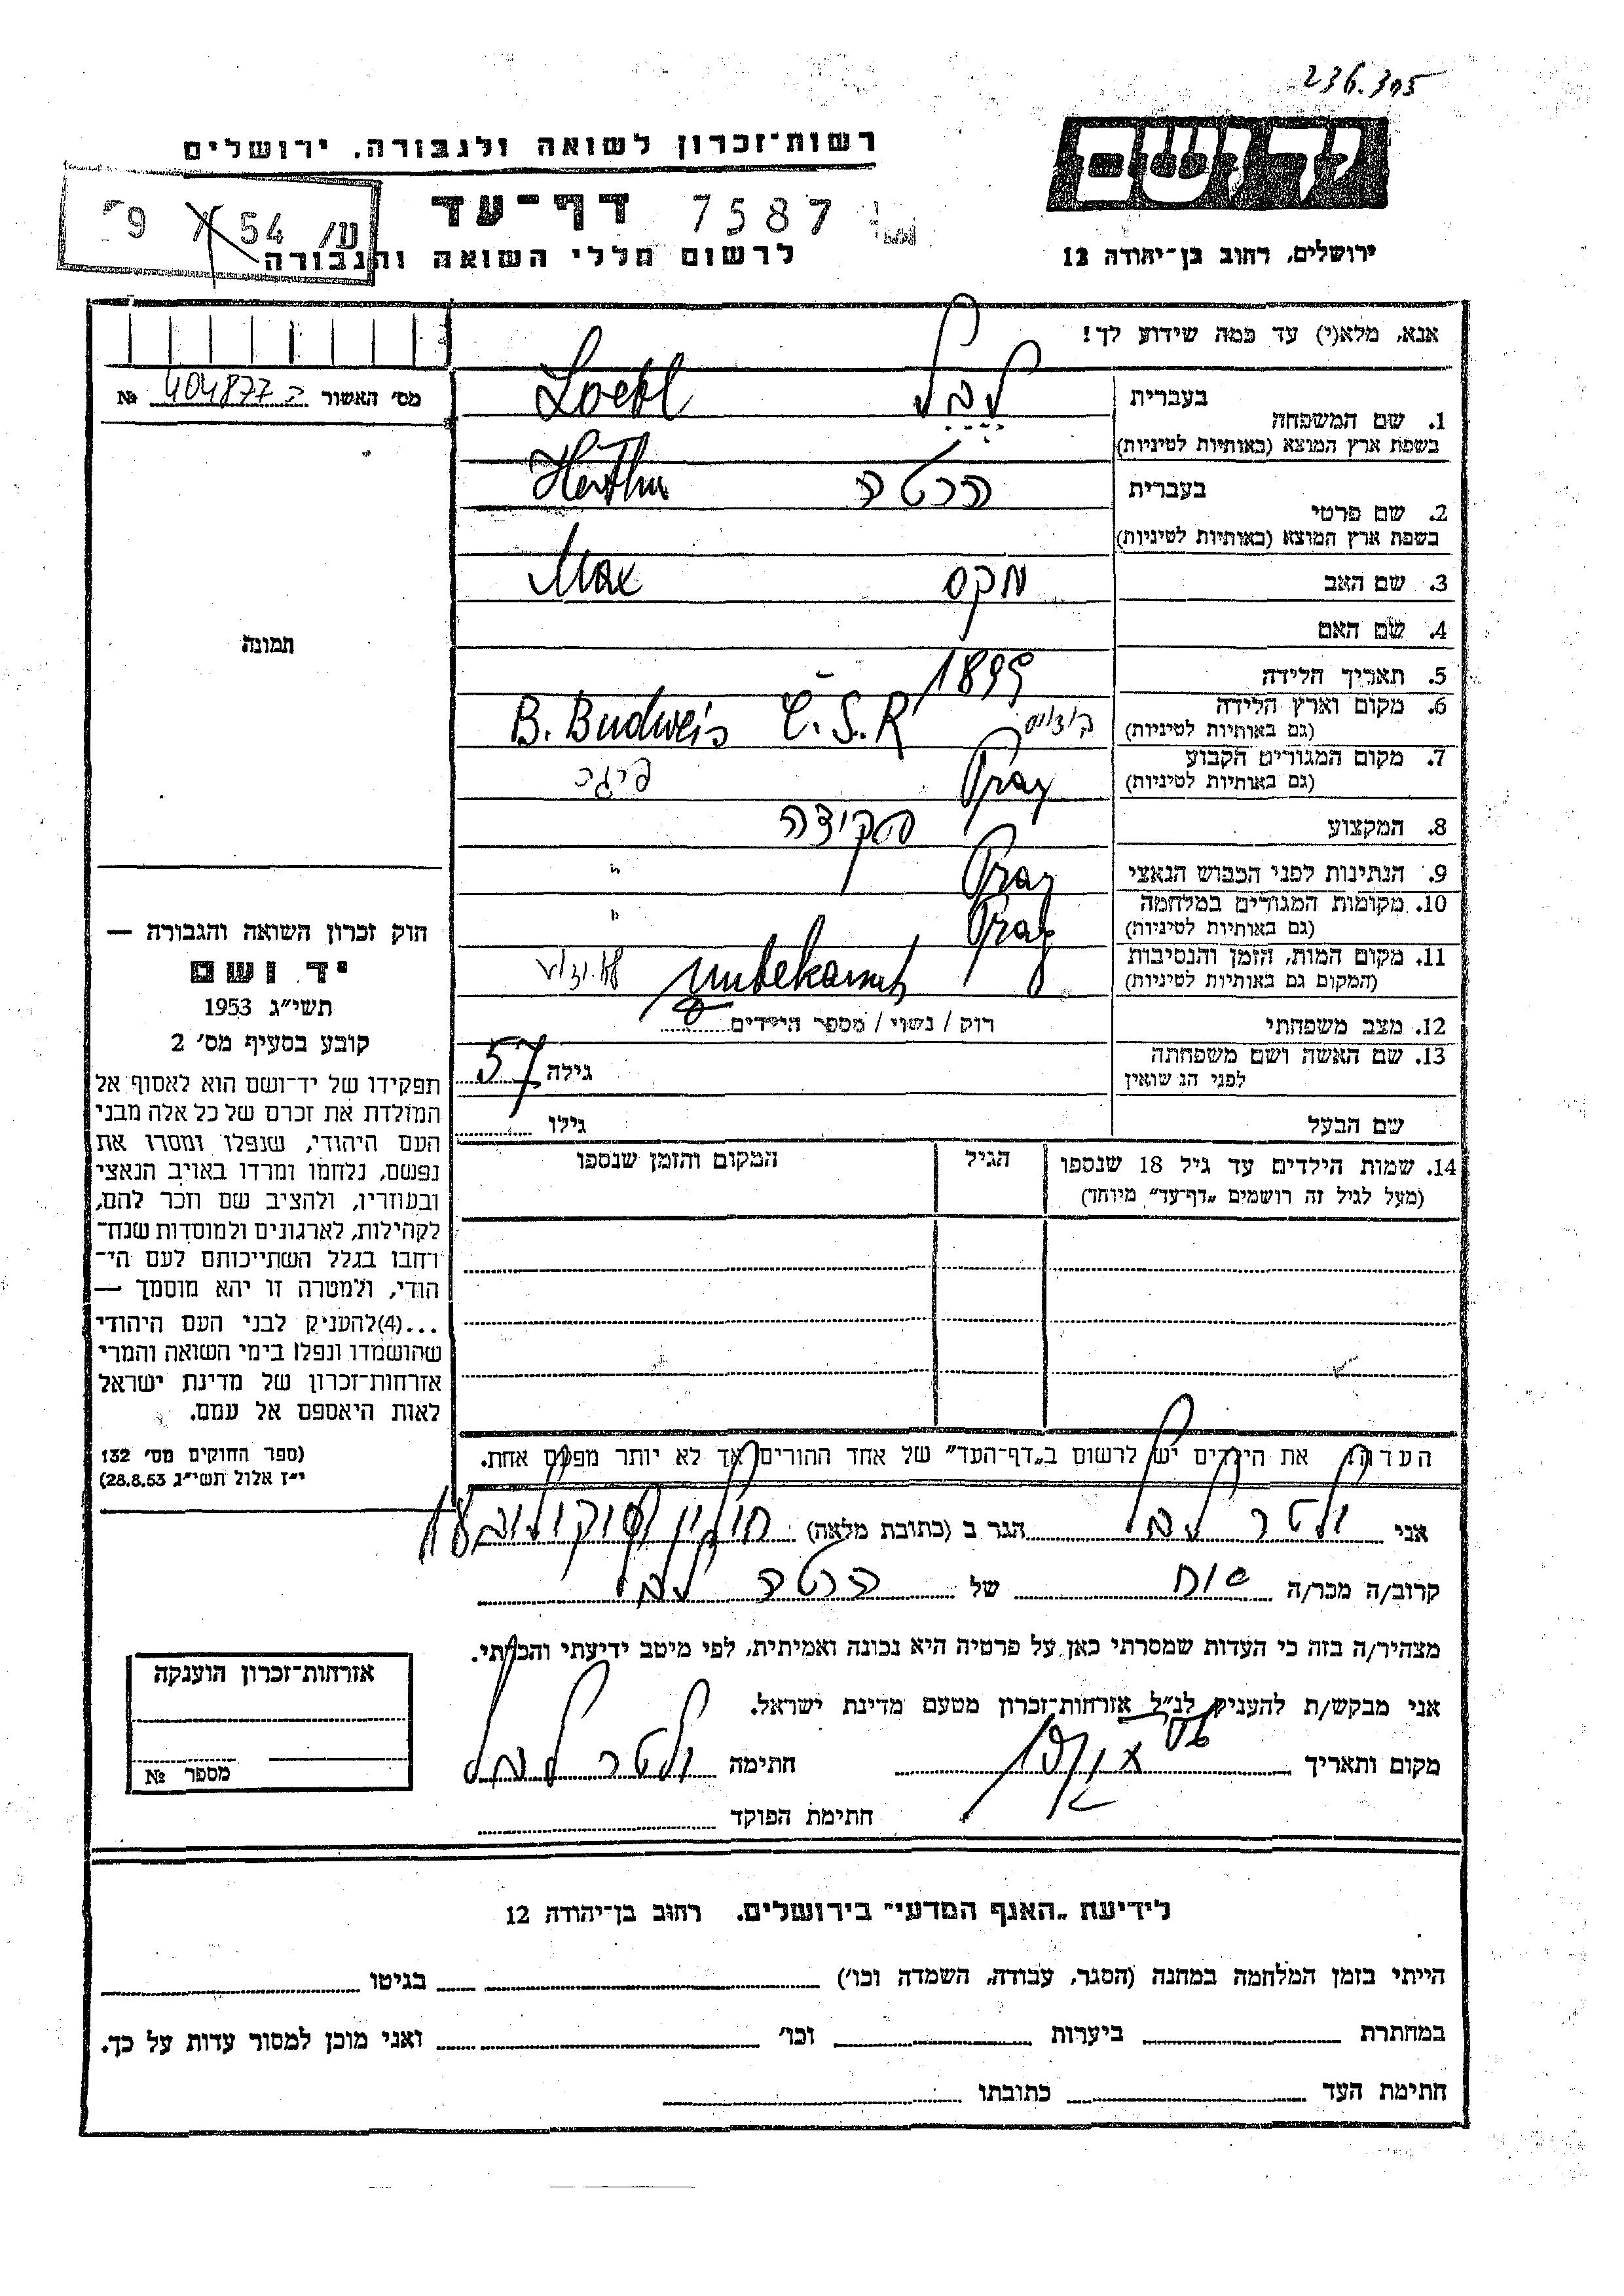 236.305
רשות־זכרון לשואה ולגבורה. ירושלים
יד ושם
דף־עד 7587
9 X 54 /ע
לרשום חללי השואה והגבורה
ירושלים, רחוב בן־יהודה 12
אנא, מלא(י) עד כמה שידוע לך!
מס׳ האשור 404877 ה №
1. שם המשפחה
בעברית לבל Loebl
בשפת ארץ המוצא (באותיות לטיניות)
2. שם פרטי
בעברית הרטה Hertha
בשפת ארץ המוצא (באותיות לטיניות)
3. שם האב מקס Max
4. שם האם
5. תאריך הלידה 1899
6. מקום וארץ הלידה B. Budweis Č.S.R
(גם באותיות לטיניות)
7. מקום המגורים הקבוע Prag פרג
(גם באותיות לטיניות)
8. המקצוע פקידה
9. הנתינות לפני הכבוש הנאצי Prag "
10. מקומות המגורים במלחמה Prag "
(גם באותיות לטיניות)
11. מקום המות, הזמן והנסיבות unbekannt לא ידוע
(המקום גם באותיות לטיניות)
12. מצב משפחתי רוק / נשוי / מספר הילדים
13. שם האשה ושם משפחתה גילה 57
לפני הנשואין
שם הבעל גילו
14. שמות הילדים עד גיל 18 שנספו הגיל המקום והזמן שנספו
(מעל לגיל זה רושמים „דף־עד״ מיוחד)
תמונה
חוק זכרון השואה והגבורה —
יד ושם
תשי״ג 1953
קובע בסעיף מס׳ 2
תפקידו של יד־ושם הוא לאסוף אל
המולדת את זכרם של כל אלה מבני
העם היהודי, שנפלו ומסרו את
נפשם, נלחמו ומרדו באויב הנאצי
ובעוזריו, ולהציב שם וזכר להם,
לקהילות, לארגונים ולמוסדות שנח־
רבו בגלל השתייכותם לעם הי־
הודי, ולמטרה זו יהא מוסמך —
...(4)להעניק לבני העם היהודי
שהושמדו ונפלו בימי השואה והמרי
אזרחות־זכרון של מדינת ישראל
לאות היאספם אל עמם.
(ספר החוקים מס׳ 132
י״ז אלול תשי״ג 28.8.53)
הערה: את הילדים יש לרשום ב„דף־העד״ של אחד ההורים אך לא יותר מפעם אחת.
אני ולטר לבל הגר ב (כתובת מלאה) חולון
קרוב/ה מכר/ה אח של הרטה לבל
מצהיר/ה בזה כי העדות שמסרתי כאן על פרטיה היא נכונה ואמיתית, לפי מיטב ידיעתי והכרתי.
אני מבקש/ת להעניק לנ״ל אזרחות־זכרון מטעם מדינת ישראל.
מקום ותאריך חתימה ולטר לבל
חתימת הפוקד
אזרחות־זכרון הוענקה
מספר №
לידיעת „האגף המדעי״ בירושלים. רחוב בן־יהודה 12
הייתי בזמן המלחמה במחנה (הסגר, עבודה, השמדה וכו׳) בגיטו
במחתרת ביערות וכו׳ ואני מוכן למסור עדות על כך.
חתימת העד כתובתו